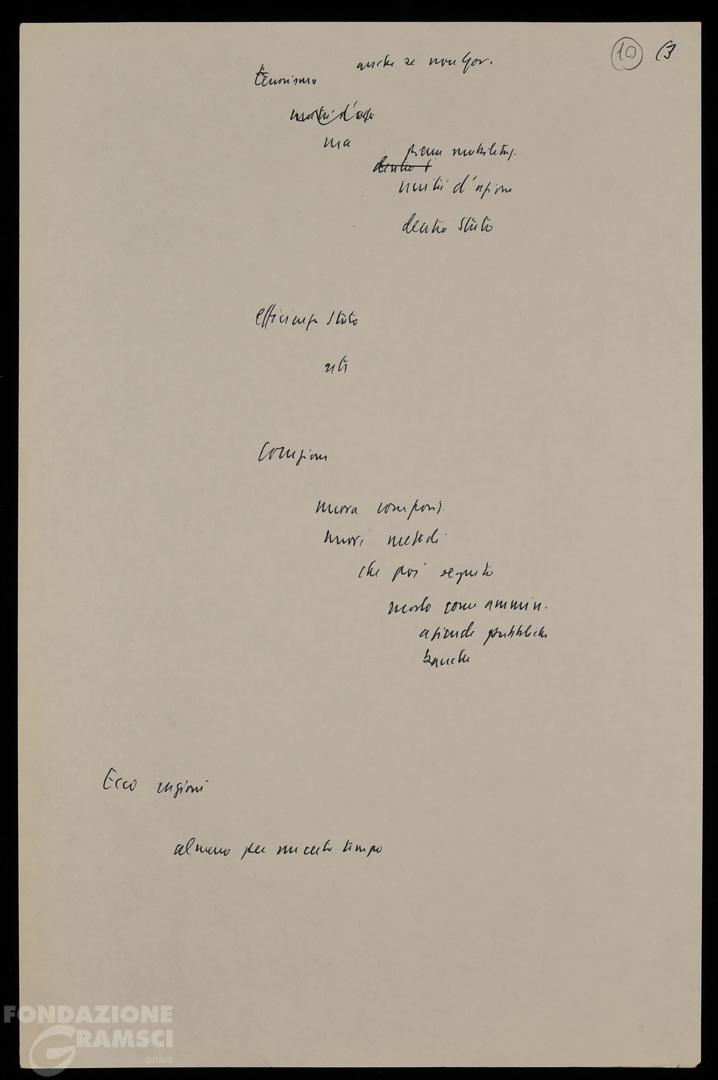 10 (3
anche se non Gov.
terrorismo
ma
piena mobilitaz.
dentro
unità d'azione
dentro Stato
efficienza Stato
Corruzione
nuova composiz.
nuovi metodi
che poi seguito
modo come ammin.
aziende pubbliche
banche
Ecco ragioni
almeno per un certo tempo
FONDAZIONE
GRAMSCI
onlus